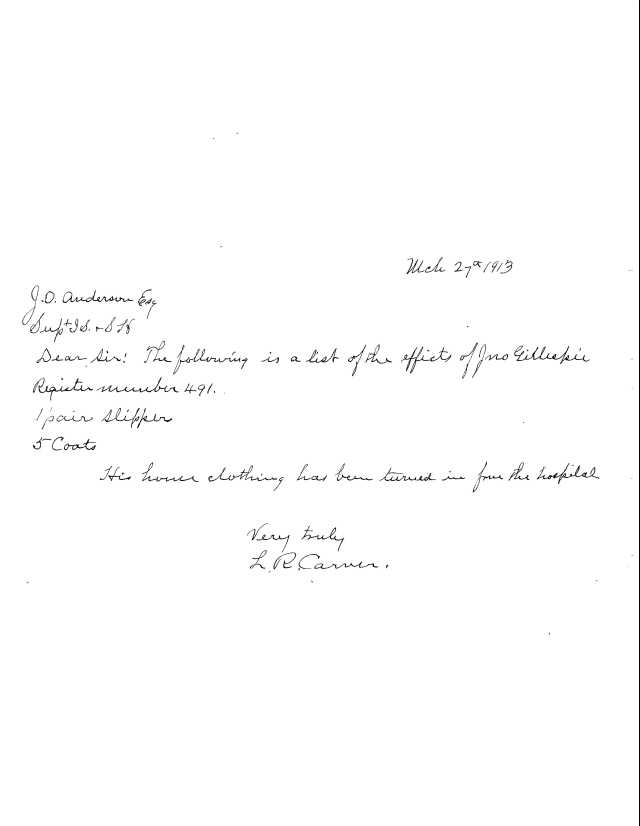 Mch 27th 1913
J.D. Anderson Esq
Supt I S. & S H
Dear Sir: The following is a list of the effects of Jno Gillespie
Register number 491.
1 pair slipper
5 Coats
His home clothing has been turned in from the hospital
Very truly
L. R. Carver.